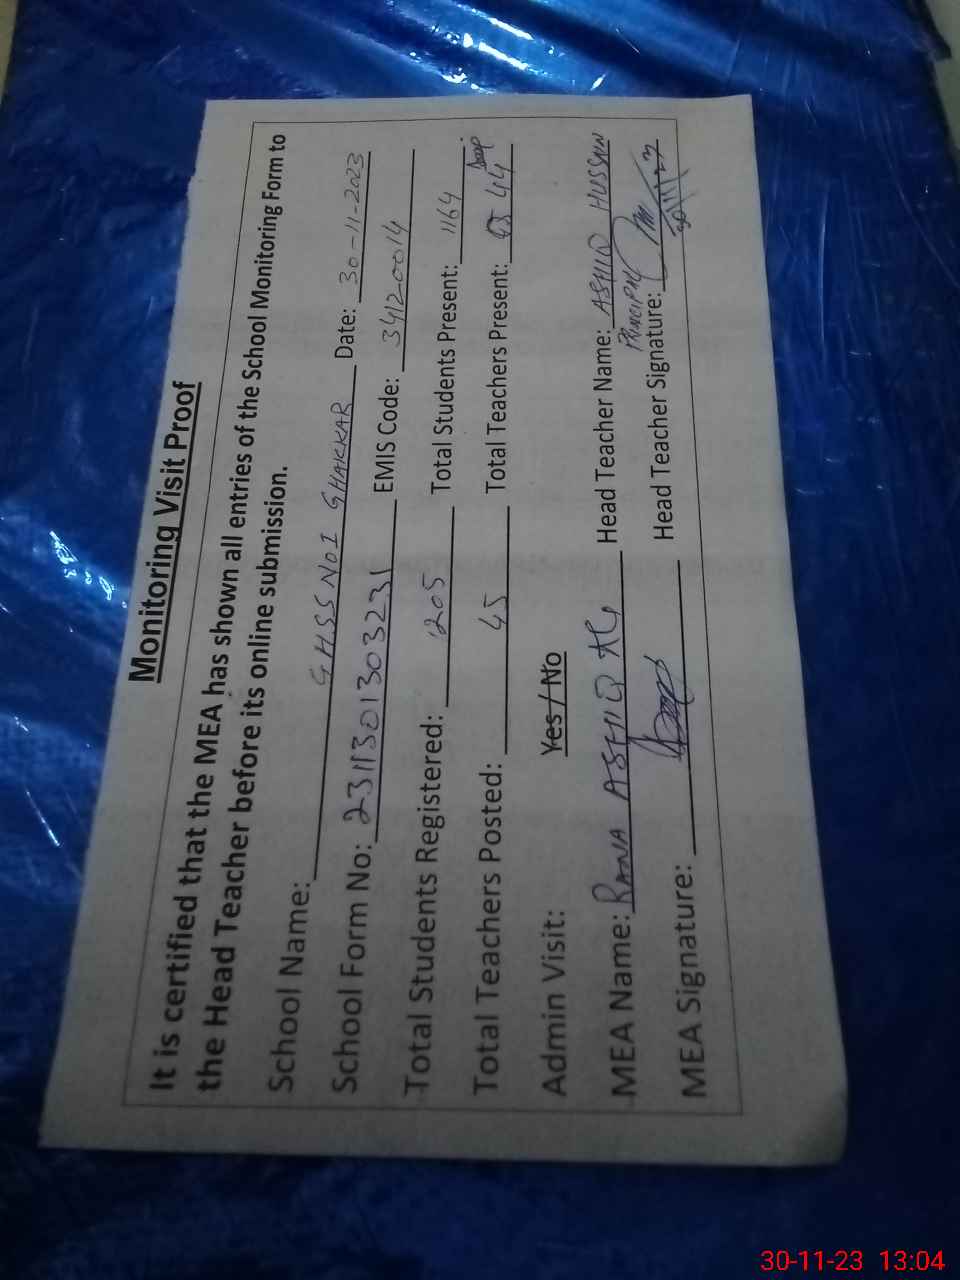 Monitoring Visit Proof
It is certified that the MEA has shown all entries of the School Monitoring Form to
the Head Teacher before its online submission.
School Name: G.H.S.S NO1 GHAKKAR Date: 30-11-2023
School Form No: 231130130323 EMIS Code: 34120014
Total Students Registered: 1205 Total Students Present: 1164
Total Teachers Posted: 45 Total Teachers Present: 44
Admin Visit: Yes / No
MEA Name: RANA ASHIQ Ali Head Teacher Name: ASHIQ HUSSAIN
PRINCIPAL
MEA Signature: Head Teacher Signature:
30/11/23
30-11-23 13:04